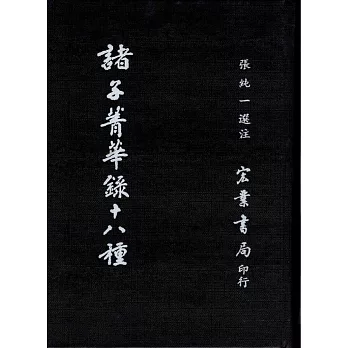 張純一選注
宏業書局印行
諸子菁華錄十八種